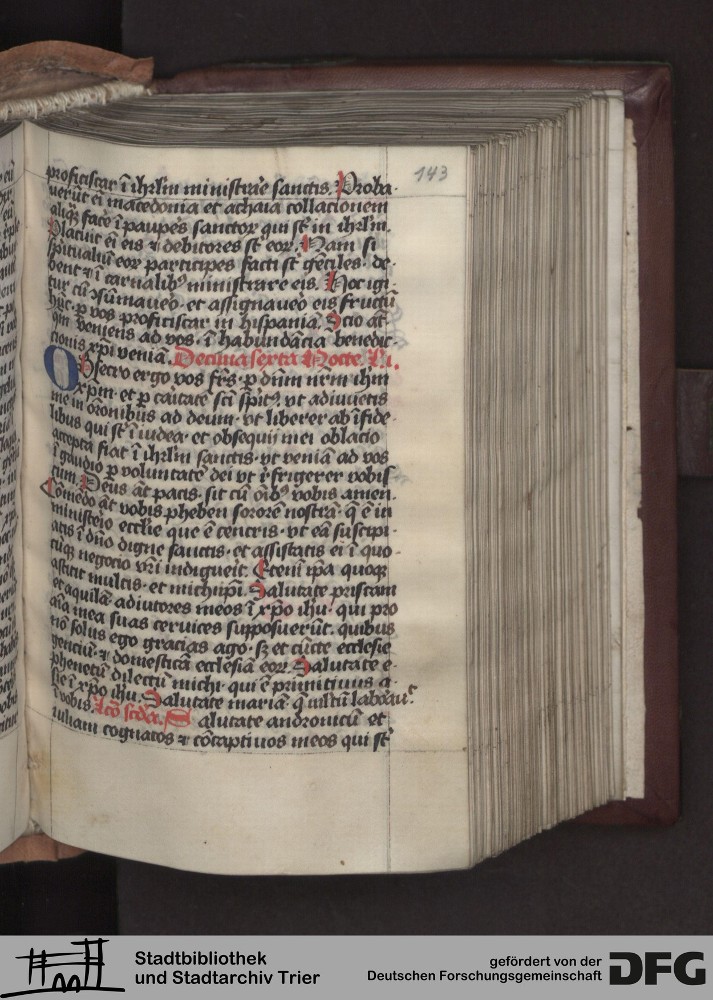 143
proficiscar ī ihrlm ministrare sanctis. Proba-
uerūt eī macedonia et achaia collacionem
aliqͣ facē ī paupes sanctoꝝ qui st̄ in ihrlm.
Placuit eī eis ⁊ debitores st̄ eoꝝ. Nam si
spūalium eoꝝ participes facti st̄ gētiles· de-
bent ⁊ ī carnalibꝰ ministrare eis. Hoc igi-
tur cū ꝯsūmaueo· et assignaueo eis fructū
hūc· ꝑ vos proficiscar in hispaniā. Scio āt
qm̄ veniens ad vos· ī habundācia benedic-
cionis xp̄i veniā. Decimasexta Nocte. L. i.
Obsecro ergo vos frēs· ꝑ dn̄m nr̄m ihm̄
xp̄m· et ꝑ caitatē sc̄i sp̄itꝰ· vt adiuuetis
me in ōronibus ad deum· vt liberer ab īfide-
libus qui st̄ ī iudea· et obsequij mei oblacio
accepta fiat ī ihrlm sanctis· vt veniā ad vos
ī gaudio ꝑ voluntatē dei vt ī frigerer vobis
cum. Deus āt pacis· sit cū oībꝰ vobis amen.
Cōmēdo āt vobis pheben sororē nostrā· q̄ ē in
ministeio ecclīe que ē cencris· vt eā suscipi-
atis ī dn̄o digne sanctis· et assistatis ei ī quo-
cūqꝫ negocio vr̄i indigueit. Eteni ip̄a quoqꝫ
astitit multis· et michi ip̄i. Salutate priscam
et aquilā· adiutores meos ī xp̄o ihu· qui pro
aīa mea suas ceruices supposuerūt. quibus
nō solus ego gracias ago· sꝫ et cūcte ecclesie
genciū· ⁊ domesticā ecclesiā eoꝝ. Salutate e-
phenetū dilectū michi· qui ē primitiuus a-
sie ī xp̄o ihu. Salutate mariā· q̄ multū laboauͬ
ī vobis. Lcō scd̄a. Salutate andronicū et
iuliam cognatos ⁊ cōcaptiuos meos qui st̄
Stadtbibliothek
und Stadtarchiv Trier
gefördert von der
Deutschen Forschungsgemeinschaft
DFG